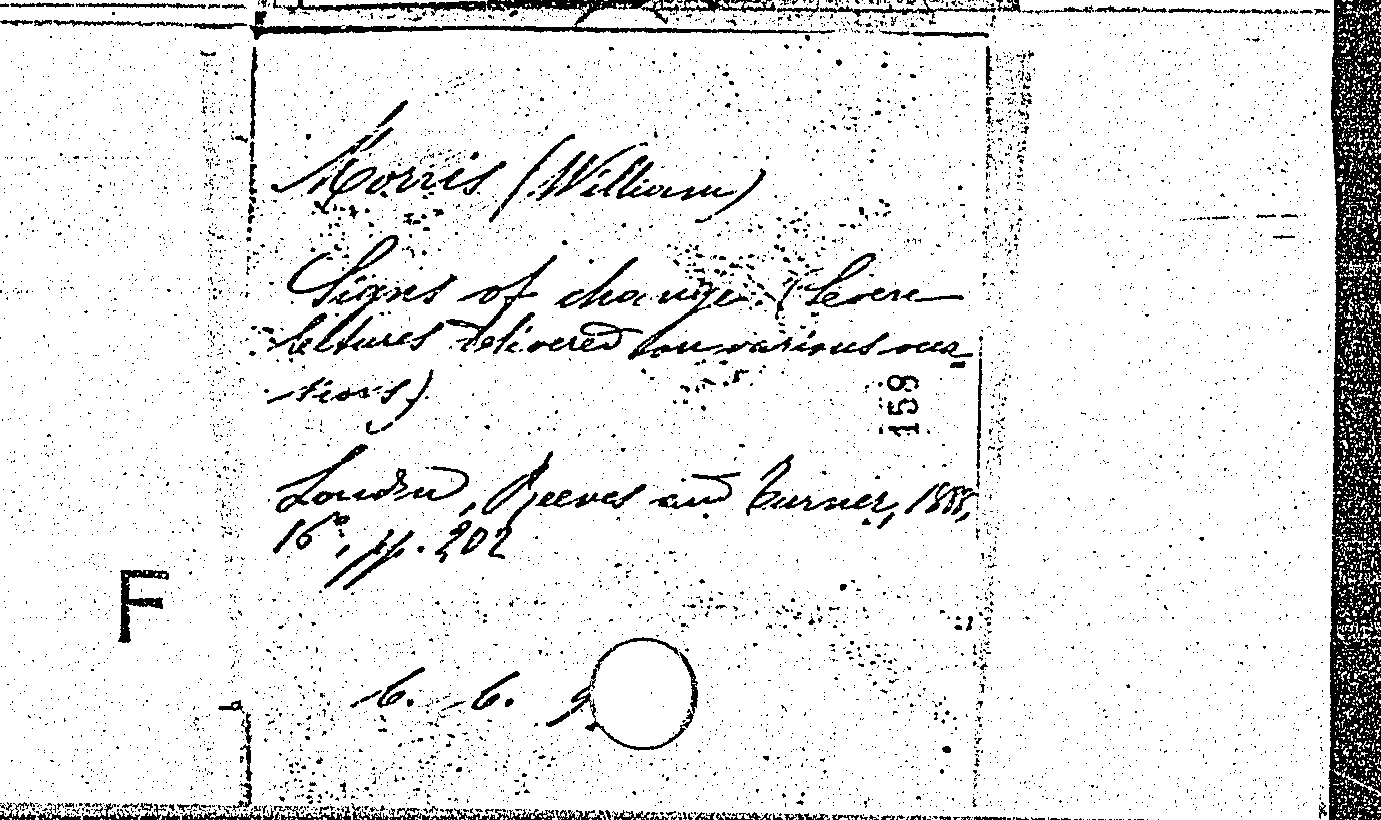 Morris (William)
Signs of change (Seven
lectures delivered on various occa-
-tions)
159
London, Reeves and Turner, 1888,
16°, pp. 202
F
6. 6. 9